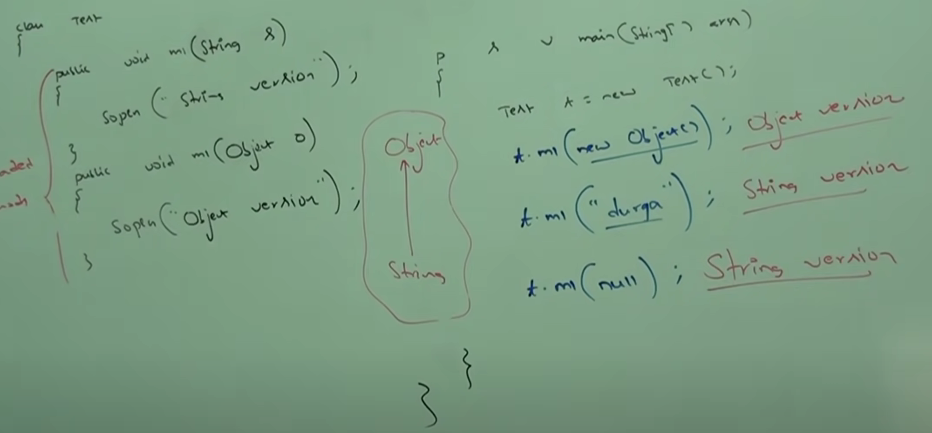 class Test
{
public void m1(String s)
{
sopln("String version");
}
public void m1(Object o)
{
sopln("Object version");
}
Object
String
p s v main(String[] args)
{
Test t = new Test();
t.m1(new Object()); Object version
t.m1("durga"); String version
t.m1(null); String version
}
}